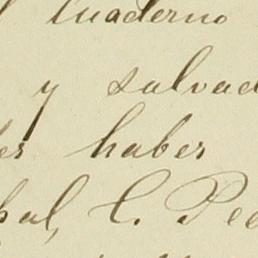 l Cuaderno
y salvad
es haber
hal, C. Pe